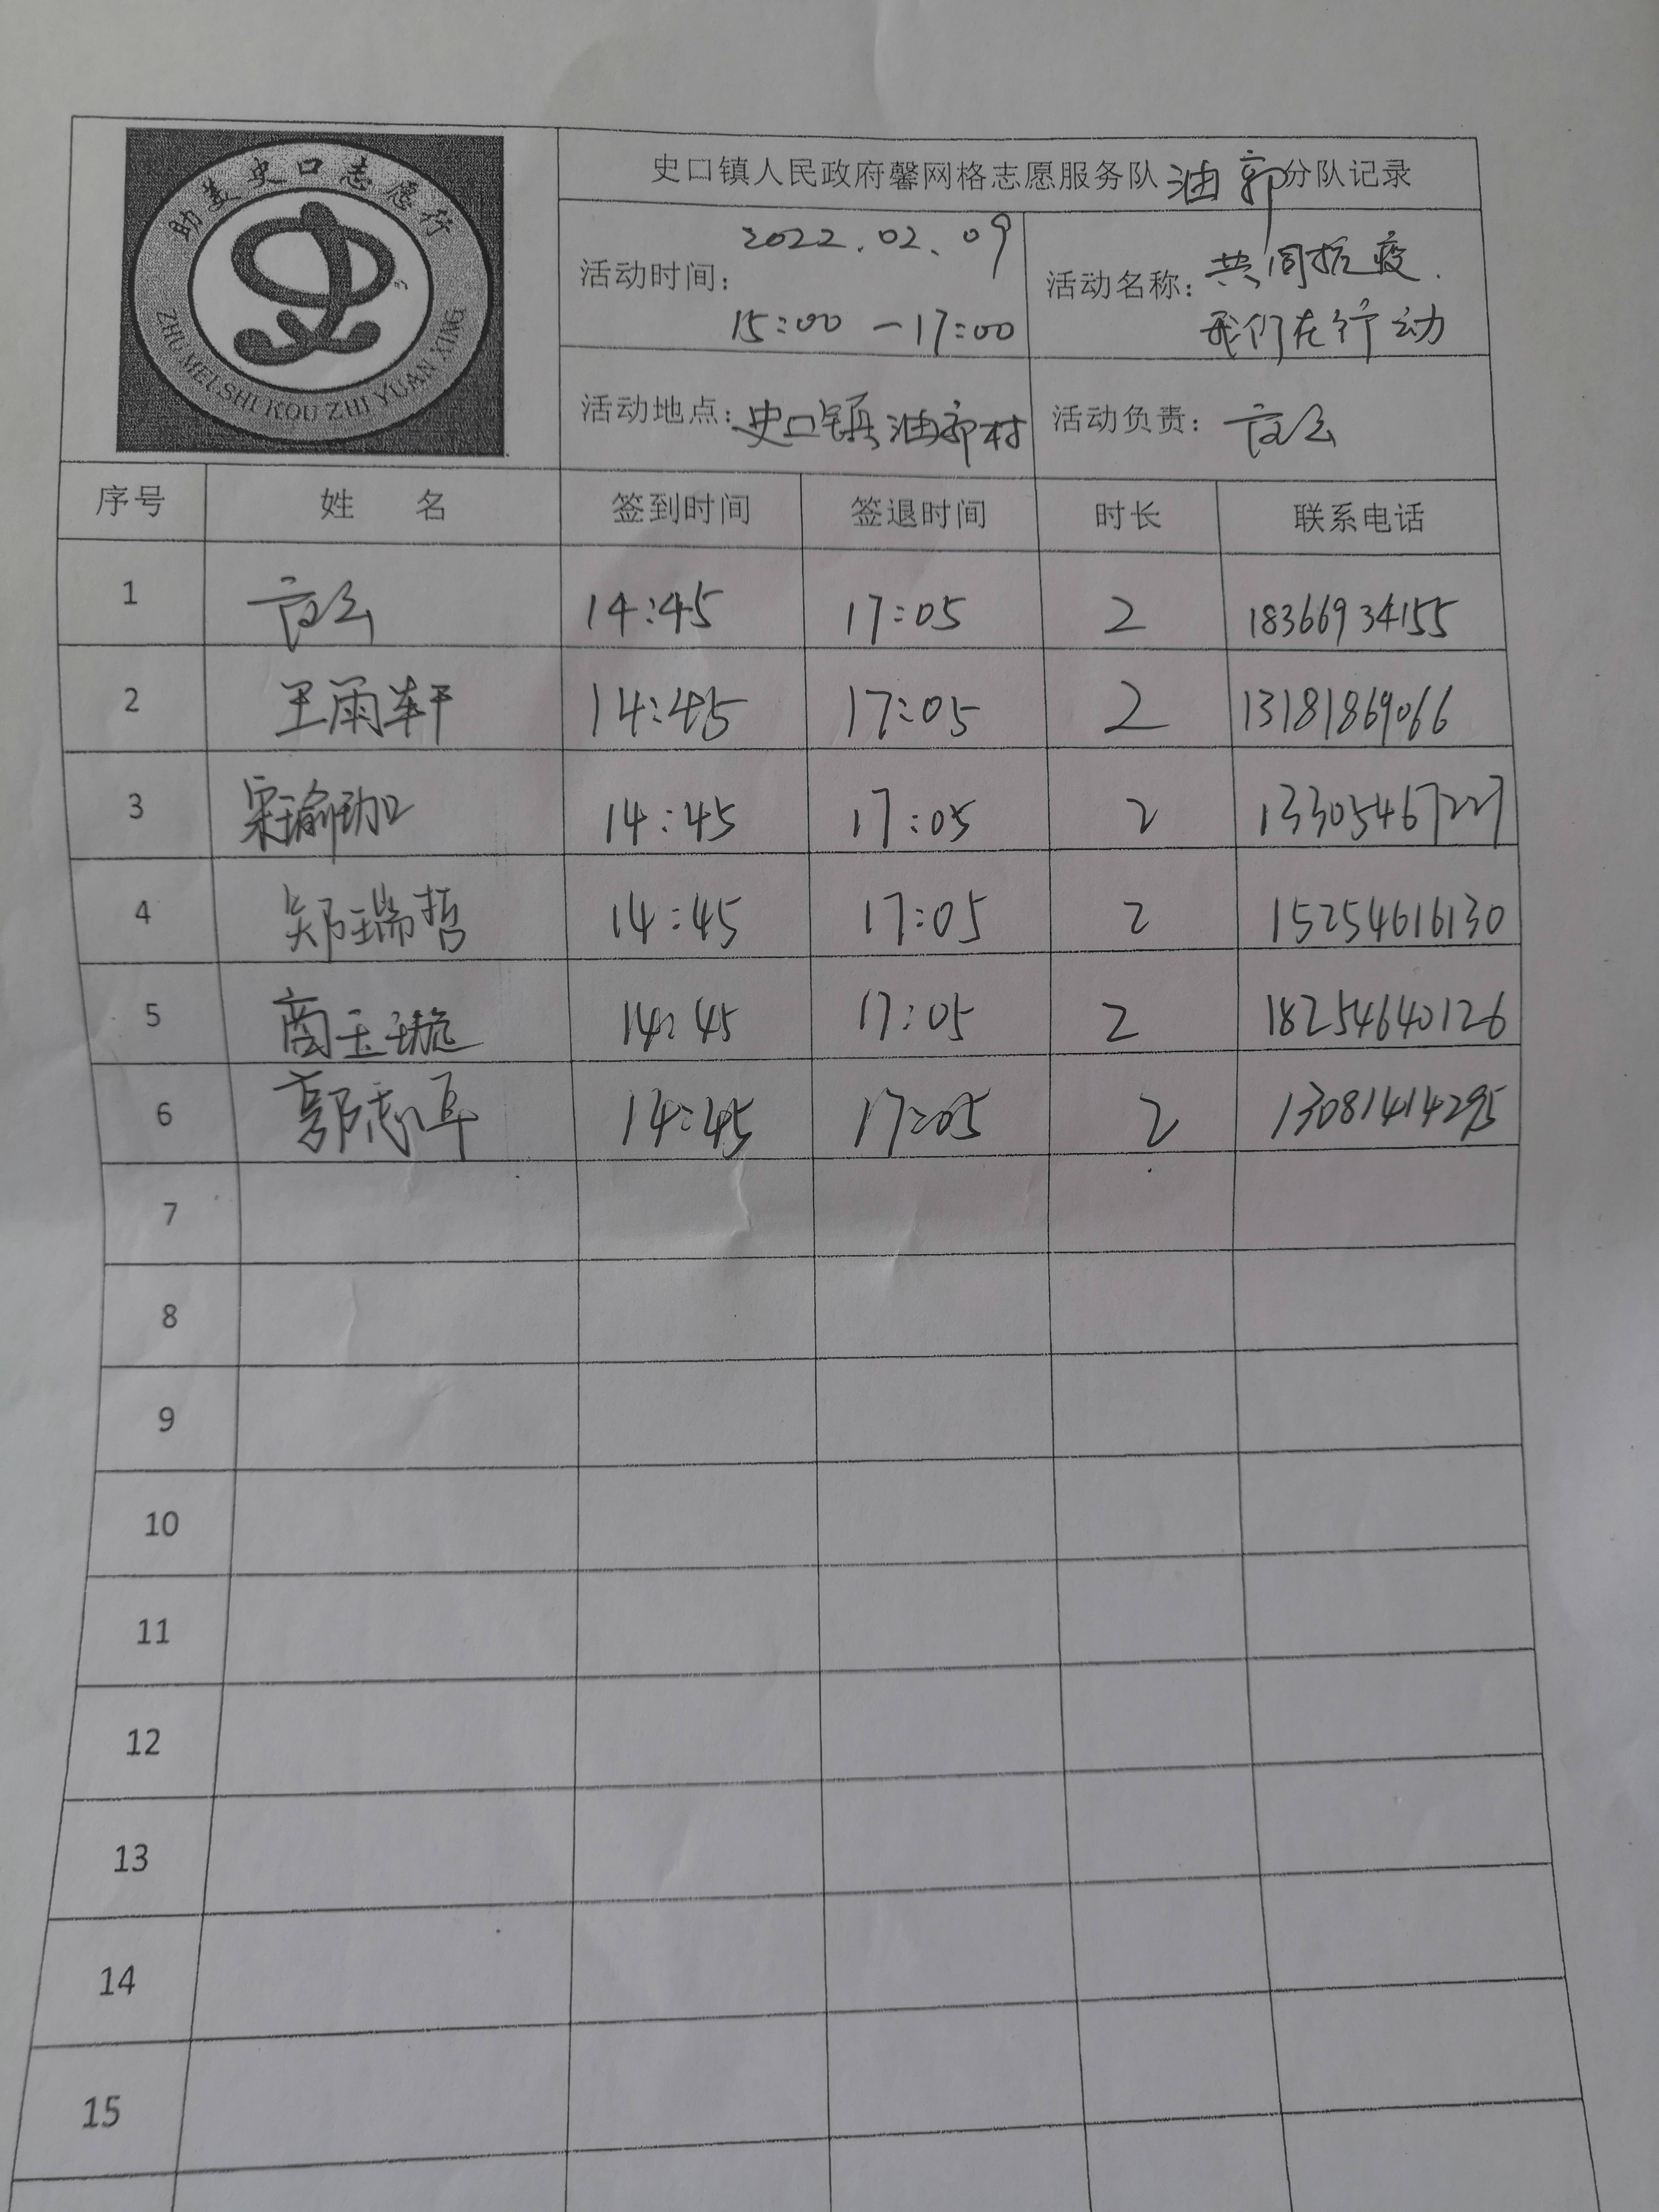 助美史口志愿行
ZHU MEI SHI KOU ZHI YUAN XING
史口镇人民政府馨网格志愿服务队油郭分队记录
活动时间: 2022.02.09
15:00 — 17:00
活动名称: 共同抗疫.
我们在行动
活动地点: 史口镇油郭村
活动负责:
序号 姓 名 签到时间 签退时间 时长 联系电话
1 14:45 17:05 2 18366934155
2 王雨轩 14:45 17:05 2 13181869066
3 宋瑜珈 14:45 17:05 2 13305467227
4 郑瑞哲 14:45 17:05 2 15254616130
5 商玉璇 14:45 17:05 2 18254640126
6 郭志 14:45 17:05 2 13081414295
7
8
9
10
11
12
13
14
15